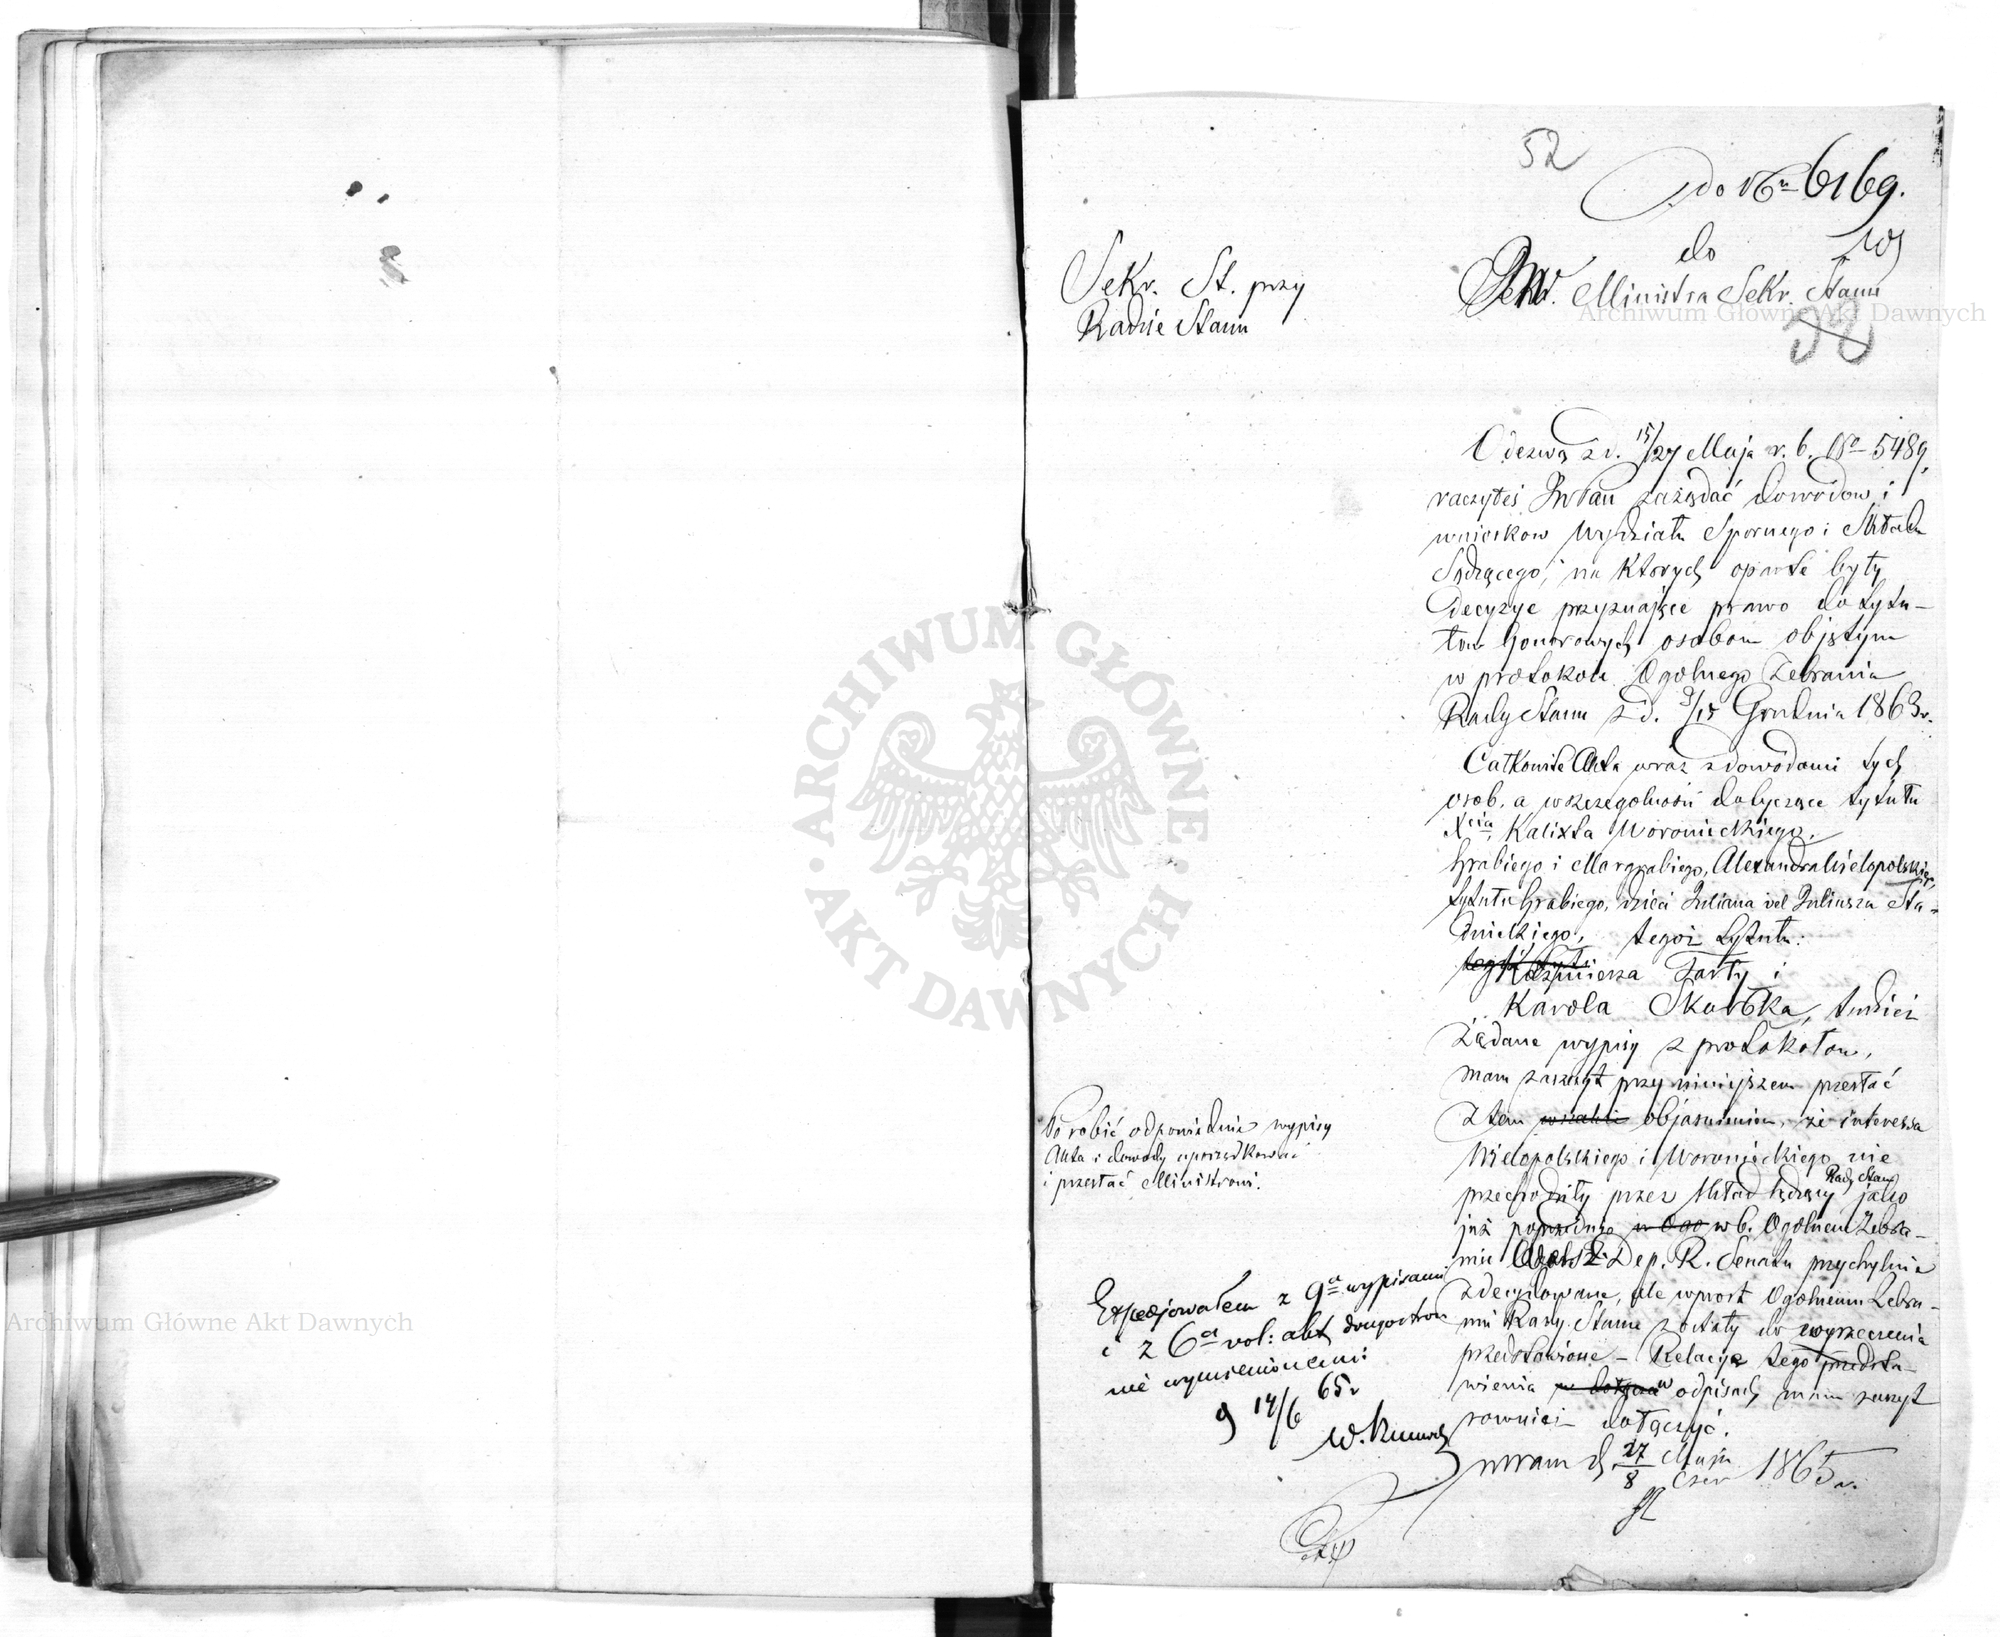 52
do Nru 6169.
do
Sekr. St. przy
Radzie Stanu
JW. Ministra Sekr. Stanu
Odezwą z d. 15/27 Maja r. b. No 5489,
raczyłeś JWPan zażądać dowodów i
wniosków Wydziału Spornego i Składu
Sądzącego, na których oparte były
decyzye przyznające prawo do tytu-
łów honorowych osobom objętym
w protokole Ogólnego Zebrania
Rady Stanu z d. 3/15 Grudnia 1863 r.
Całkowite Akta wraz z dowodami tych
osób, a w szczególności dotyczące tytułu
Xcia, Kalixta Woronieckiego,
hrabiego i Margrabiego, Alexandra Wielopolskiego,
tytułu hrabiego, dzieci Juliana vel Juliusza Sta-
dnickiego, tegoż tytułu:
Kazimierza Zarty i
Karola Skarbka, tudzież
żądane wypisy z protokołów,
mam zaszczyt przy niniejszem przesłać
z tem objaśnieniem, że interessa
Wielopolskiego i Woronieckiego nie
przechodziły przez Skład Sądzący Rady Stanu jako
już poprzednio w b. Ogólnem Zebra-
niu Dep. R. Senatu przychylnie
zdecydowane, ale wprost Ogólnemu Zebra-
niu Rady Stanu zostały do wyrzeczenia
przedstawione – Relacye tego przedsta-
wienia w odpisach mam zaszczyt
również dołączyć.
Porobić odpowiednie wypisy
Akta i dowody uporządkować
i przesłać Ministrowi.
Expedjowałem z 9a wypisami
i z 6a vol: akt drugostron
nie wymienionemi
9 14/6 65 r
W.
w War d. 27/8 Maja/Czer 1865 r.
Archiwum Główne Akt Dawnych
Archiwum Główne Akt Dawnych
ARCHIWUM GŁÓWNE · AKT DAWNYCH ·